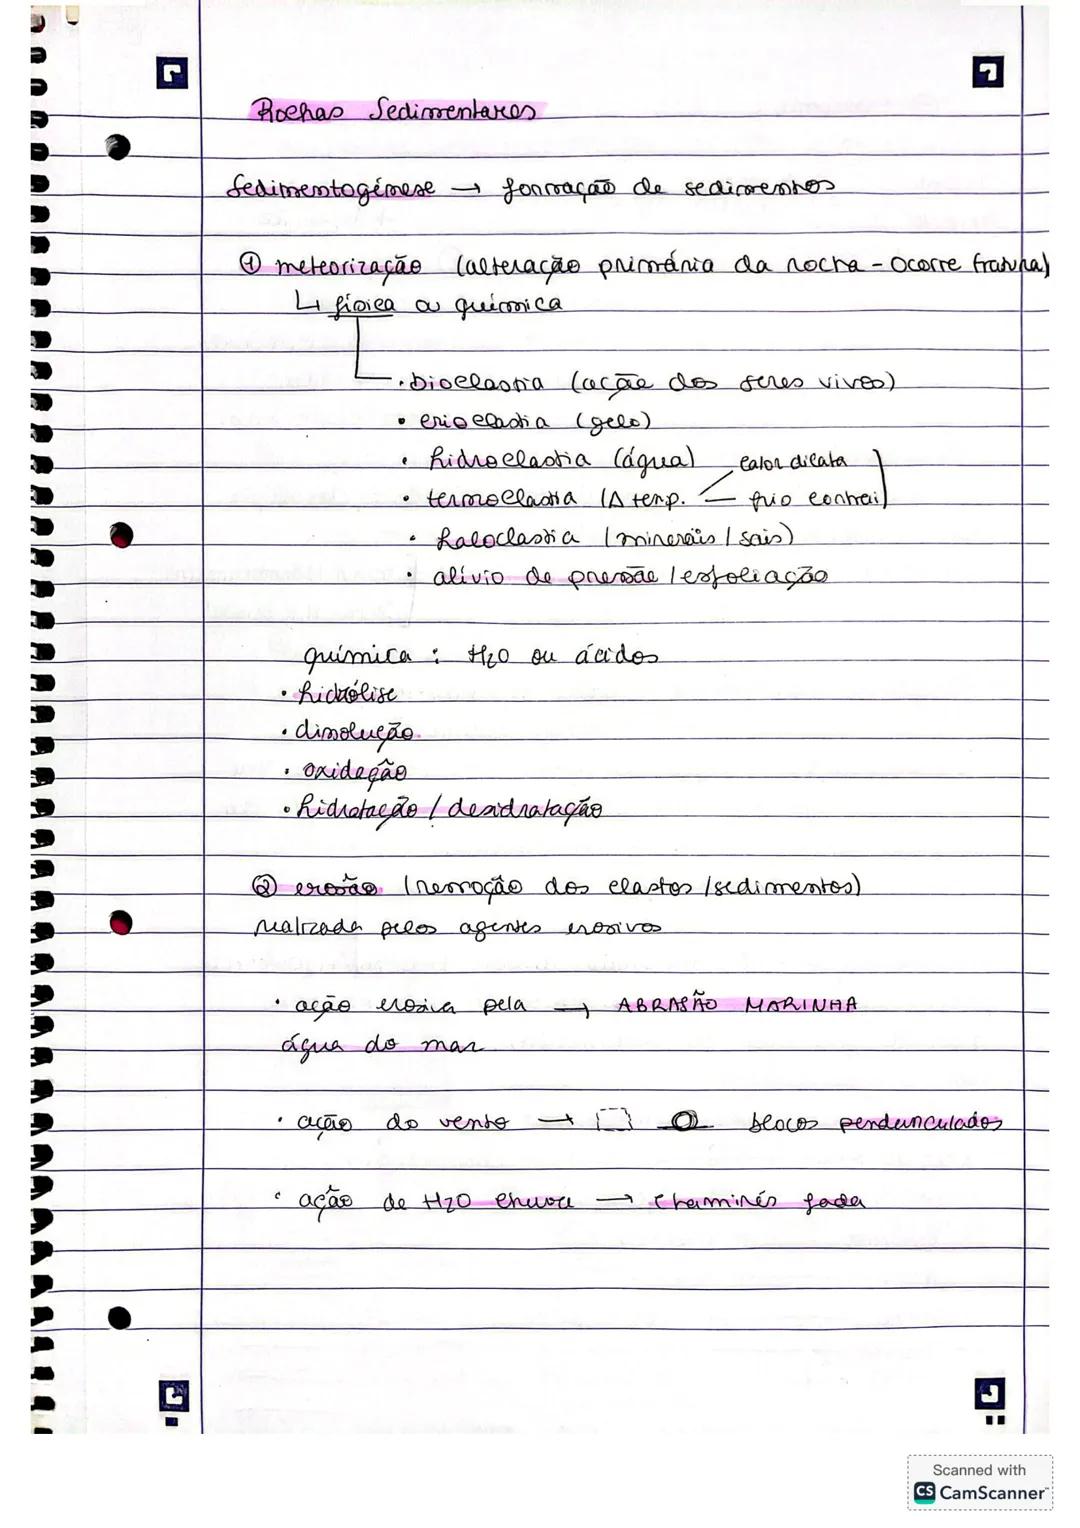 Rochas Sedimentares
Sedimentogénese → formação de sedimentos
① meteorização (alteração primária da rocha - Ocorre fratura)
↳ física ou química
• bioclastia (ação dos seres vivos)
• crioclastia (gelo)
• hidroclastia (água)
• termoclastia (Δ temp. calor dilata
frio contrai)
• haloclastia (minerais / sais)
• alívio de pressão / esfoliação
química : H2O ou ácidos
• hidrólise
• dissolução
• oxidação
• hidratação / desidratação
② erosão (remoção dos clastos / sedimentos)
realizada pelos agentes erosivos
• ação erosiva pela → ABRASÃO MARINHA
água do mar
• ação do vento → blocos pendunculados
• ação de H2O chuva → chaminés fada
Scanned with
CS CamScanner